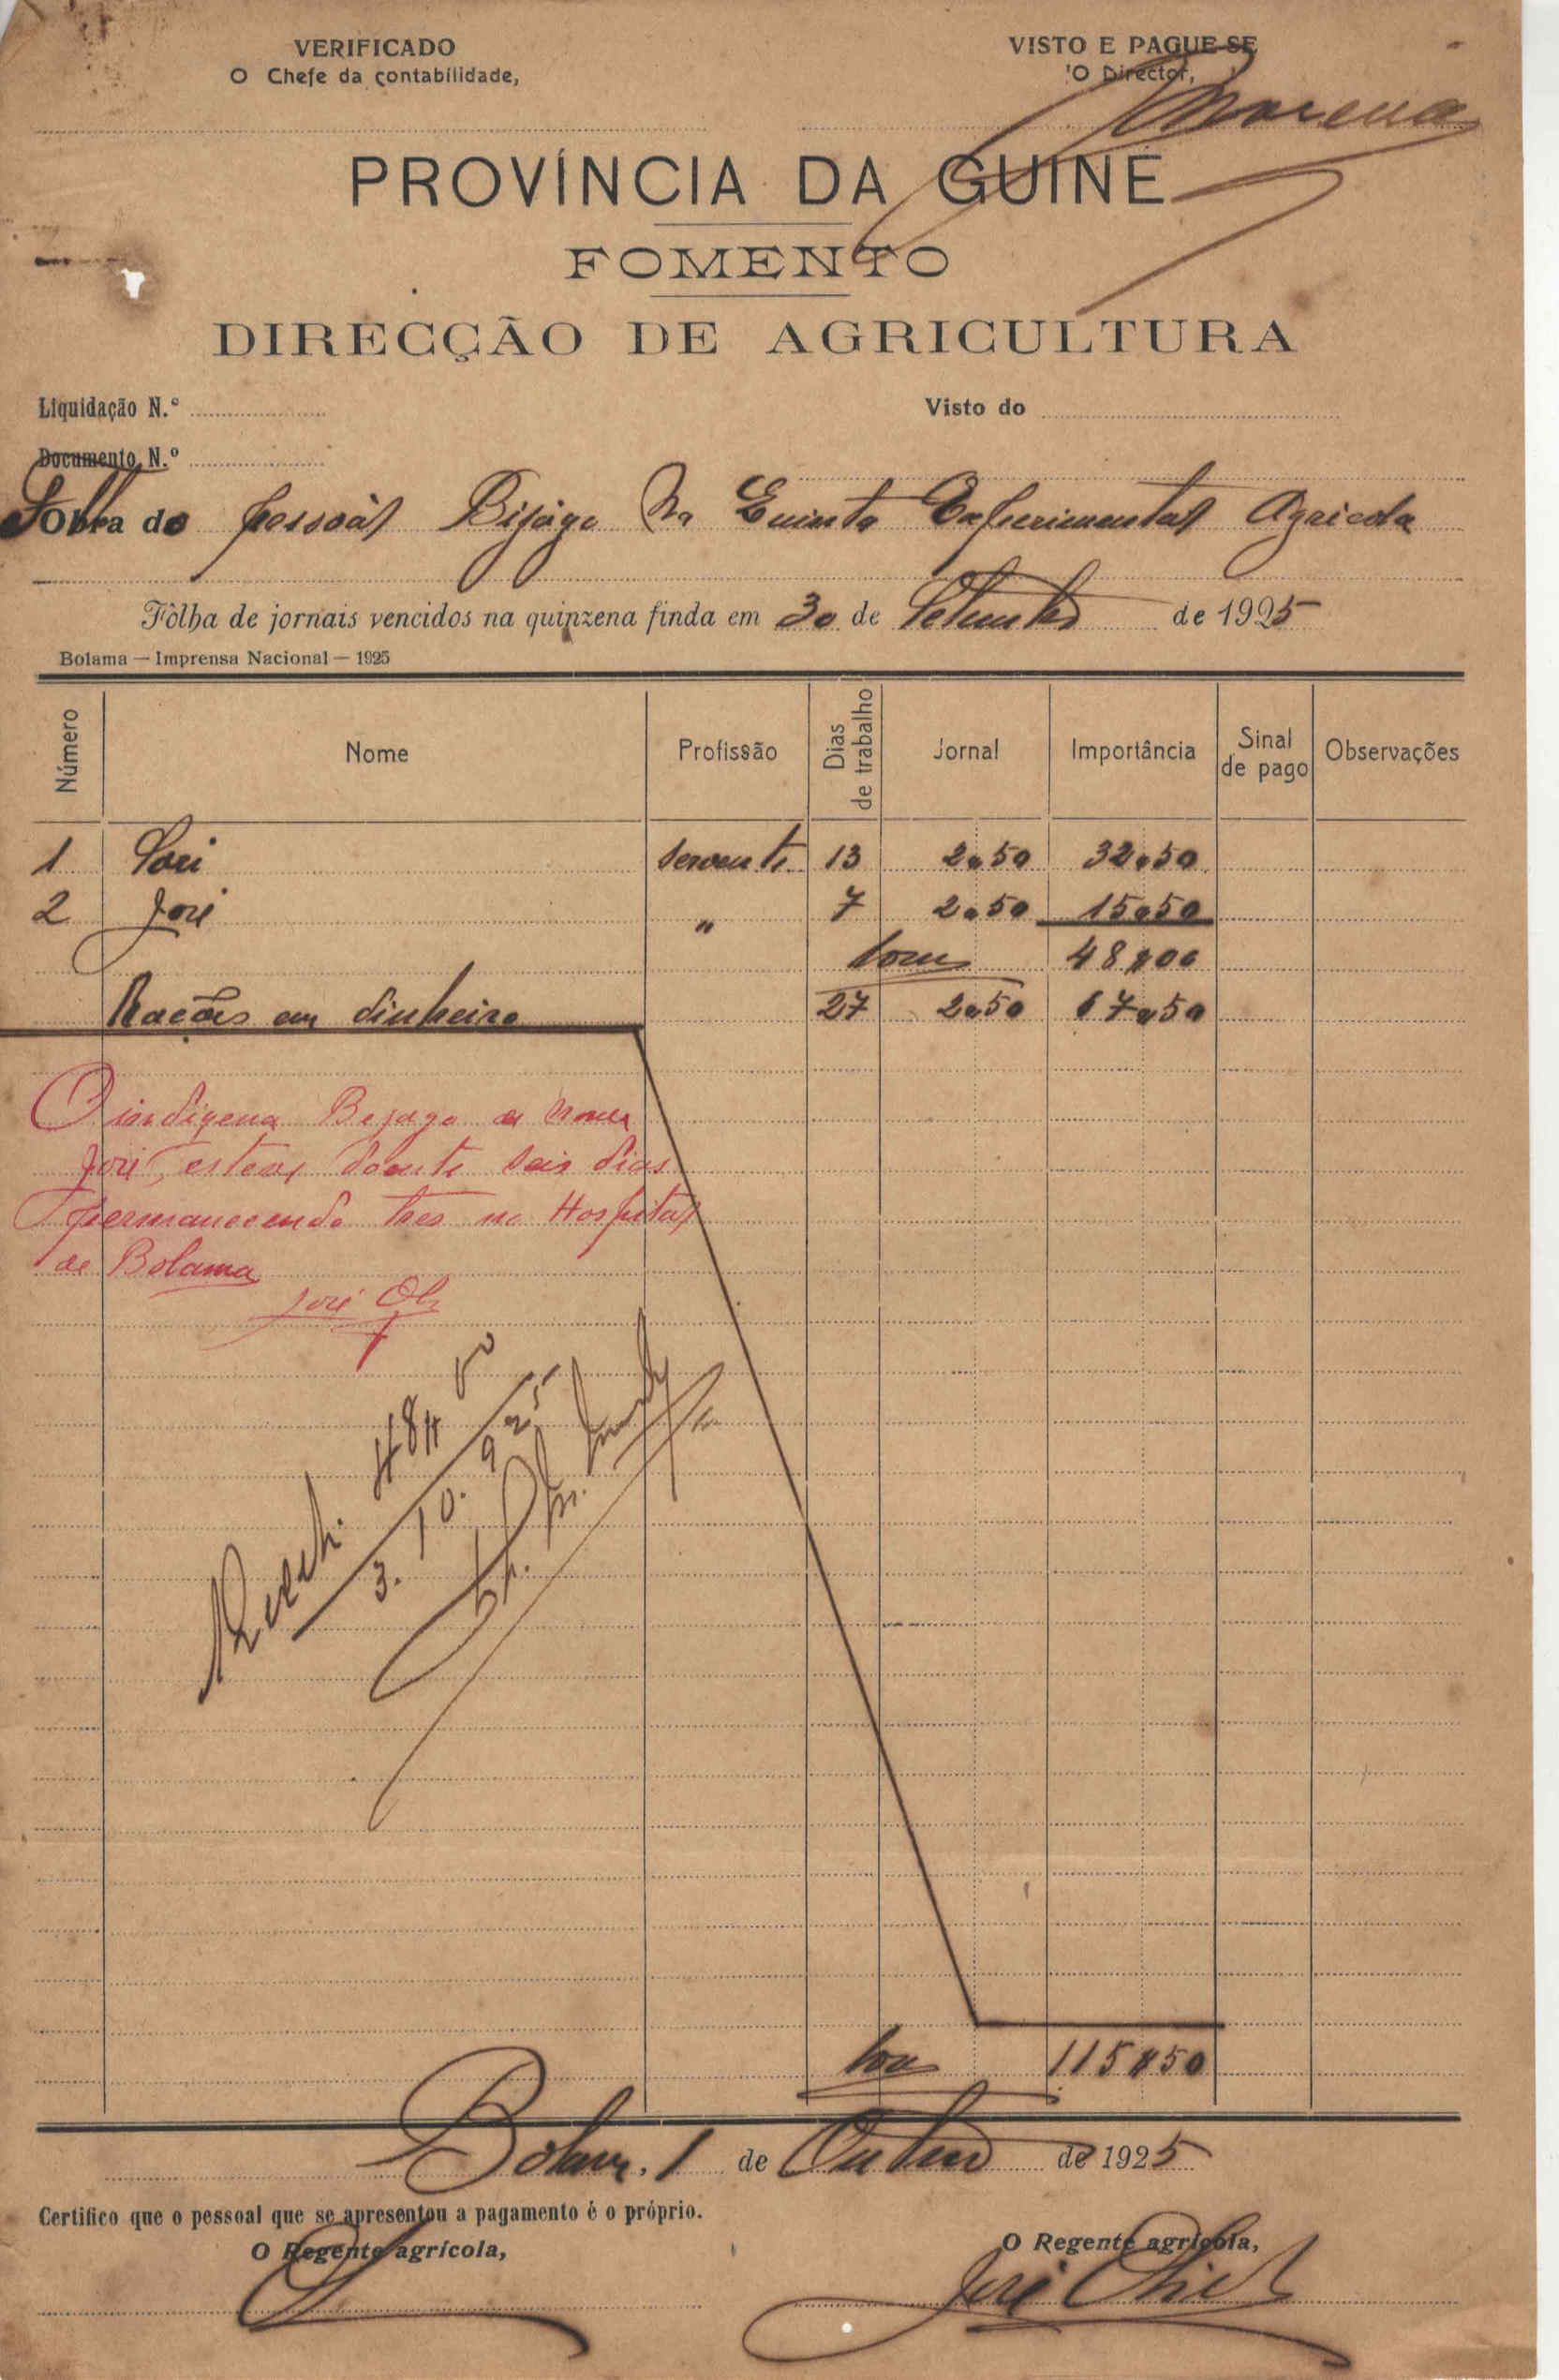 VERIFICADO
O Chefe da contabilidade,
VISTO E PAGUE-SE
O Director,
Morena
PROVÍNCIA DA GUINÉ
FOMENTO
DIRECÇÃO DE AGRICULTURA
Liquidação N.º
Visto do
Documento N.º
Obra do pessoal Bijágo na Quinta Experimental Agricola
Fôlha de jornais vencidos na quinzena finda em 30 de Setembro de 1925
Bolama — Imprensa Nacional — 1925
Número Nome Profissão Dias de trabalho Jornal Importância Sinal de pago Observações
1 Sori servente 13 2$50 32$50
2 José " 7 2$50 15$50
Soma 48$00
Rações em dinheiro 27 2$50 67$50
O indigena Bejago de nome
José, esteve doente seis dias
permanecendo tres no Hospital
de Bolama
José
3.10.925
Soma 115$50
Bolama, 1 de Outubro de 1925
Certifico que o pessoal que se apresentou a pagamento é o próprio.
O Regente agrícola,
O Regente agrícola,
José